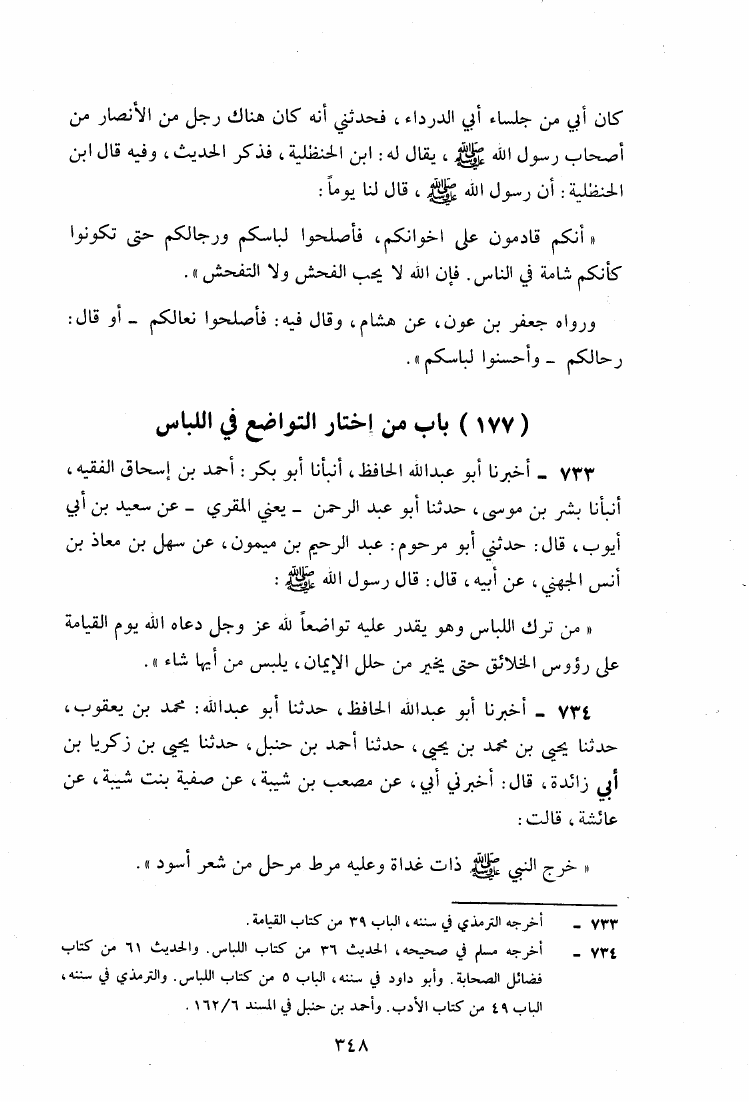 كان أبي من جلساء أبي الدرداء ، فحدثني أنه كان هناك رجل من الأنصار من
أصحاب رسول الله ﷺ ، يقال له : ابن الحنظلية ، فذكر الحديث ، وفيه قال ابن
الحنظلية : أن رسول الله ﷺ ، قال لنا يوماً :
« أنكم قادمون على اخوانكم ، فأصلحوا لباسكم ورجالكم حتى تكونوا
كأنكم شامة في الناس . فإن الله لا يحب الفحش ولا التفحش » .
ورواه جعفر بن عون ، عن هشام ، وقال فيه : فأصلحوا نعالكم – أو قال :
رحالكم – وأحسنوا لباسكم » .
( ١٧٧ ) باب من إختار التواضع في اللباس
٧٣٣ – أخبرنا أبو عبدالله الحافظ ، أنبأنا أبو بكر : أحمد بن إسحاق الفقيه ،
أنبأنا بشر بن موسى ، حدثنا أبو عبد الرحمن – يعني المقري – عن سعيد بن أبي
أيوب ، قال : حدثني أبو مرحوم : عبد الرحيم بن ميمون ، عن سهل بن معاذ بن
أنس الجهني ، عن أبيه ، قال : قال رسول الله ﷺ :
« من ترك اللباس وهو يقدر عليه تواضعاً لله عز وجل دعاه الله يوم القيامة
على رؤوس الخلائق حتى يخير من حلل الإيمان ، يلبس من أيها شاء » .
٧٣٤ – أخبرنا أبو عبدالله الحافظ ، حدثنا أبو عبدالله : محمد بن يعقوب ،
حدثنا يحيى بن محمد بن يحيى ، حدثنا أحمد بن حنبل ، حدثنا يحيى بن زكريا بن
أبي زائدة ، قال : أخبرني أبي ، عن مصعب بن شيبة ، عن صفية بنت شيبة ، عن
عائشة ، قالت :
« خرج النبي ﷺ ذات غداة وعليه مرط مرحل من شعر أسود » .
٧٣٣ – أخرجه الترمذي في سننه ، الباب ٣٩ من كتاب القيامة .
٧٣٤ – أخرجه مسلم في صحيحه ، الحديث ٣٦ من كتاب اللباس . والحديث ٦١ من كتاب
فضائل الصحابة . وأبو داود في سننه ، الباب ٥ من كتاب اللباس . والترمذي في سننه ،
الباب ٤٩ من كتاب الأدب . وأحمد بن حنبل في المسند ١٦٢/٦ .
٣٤٨